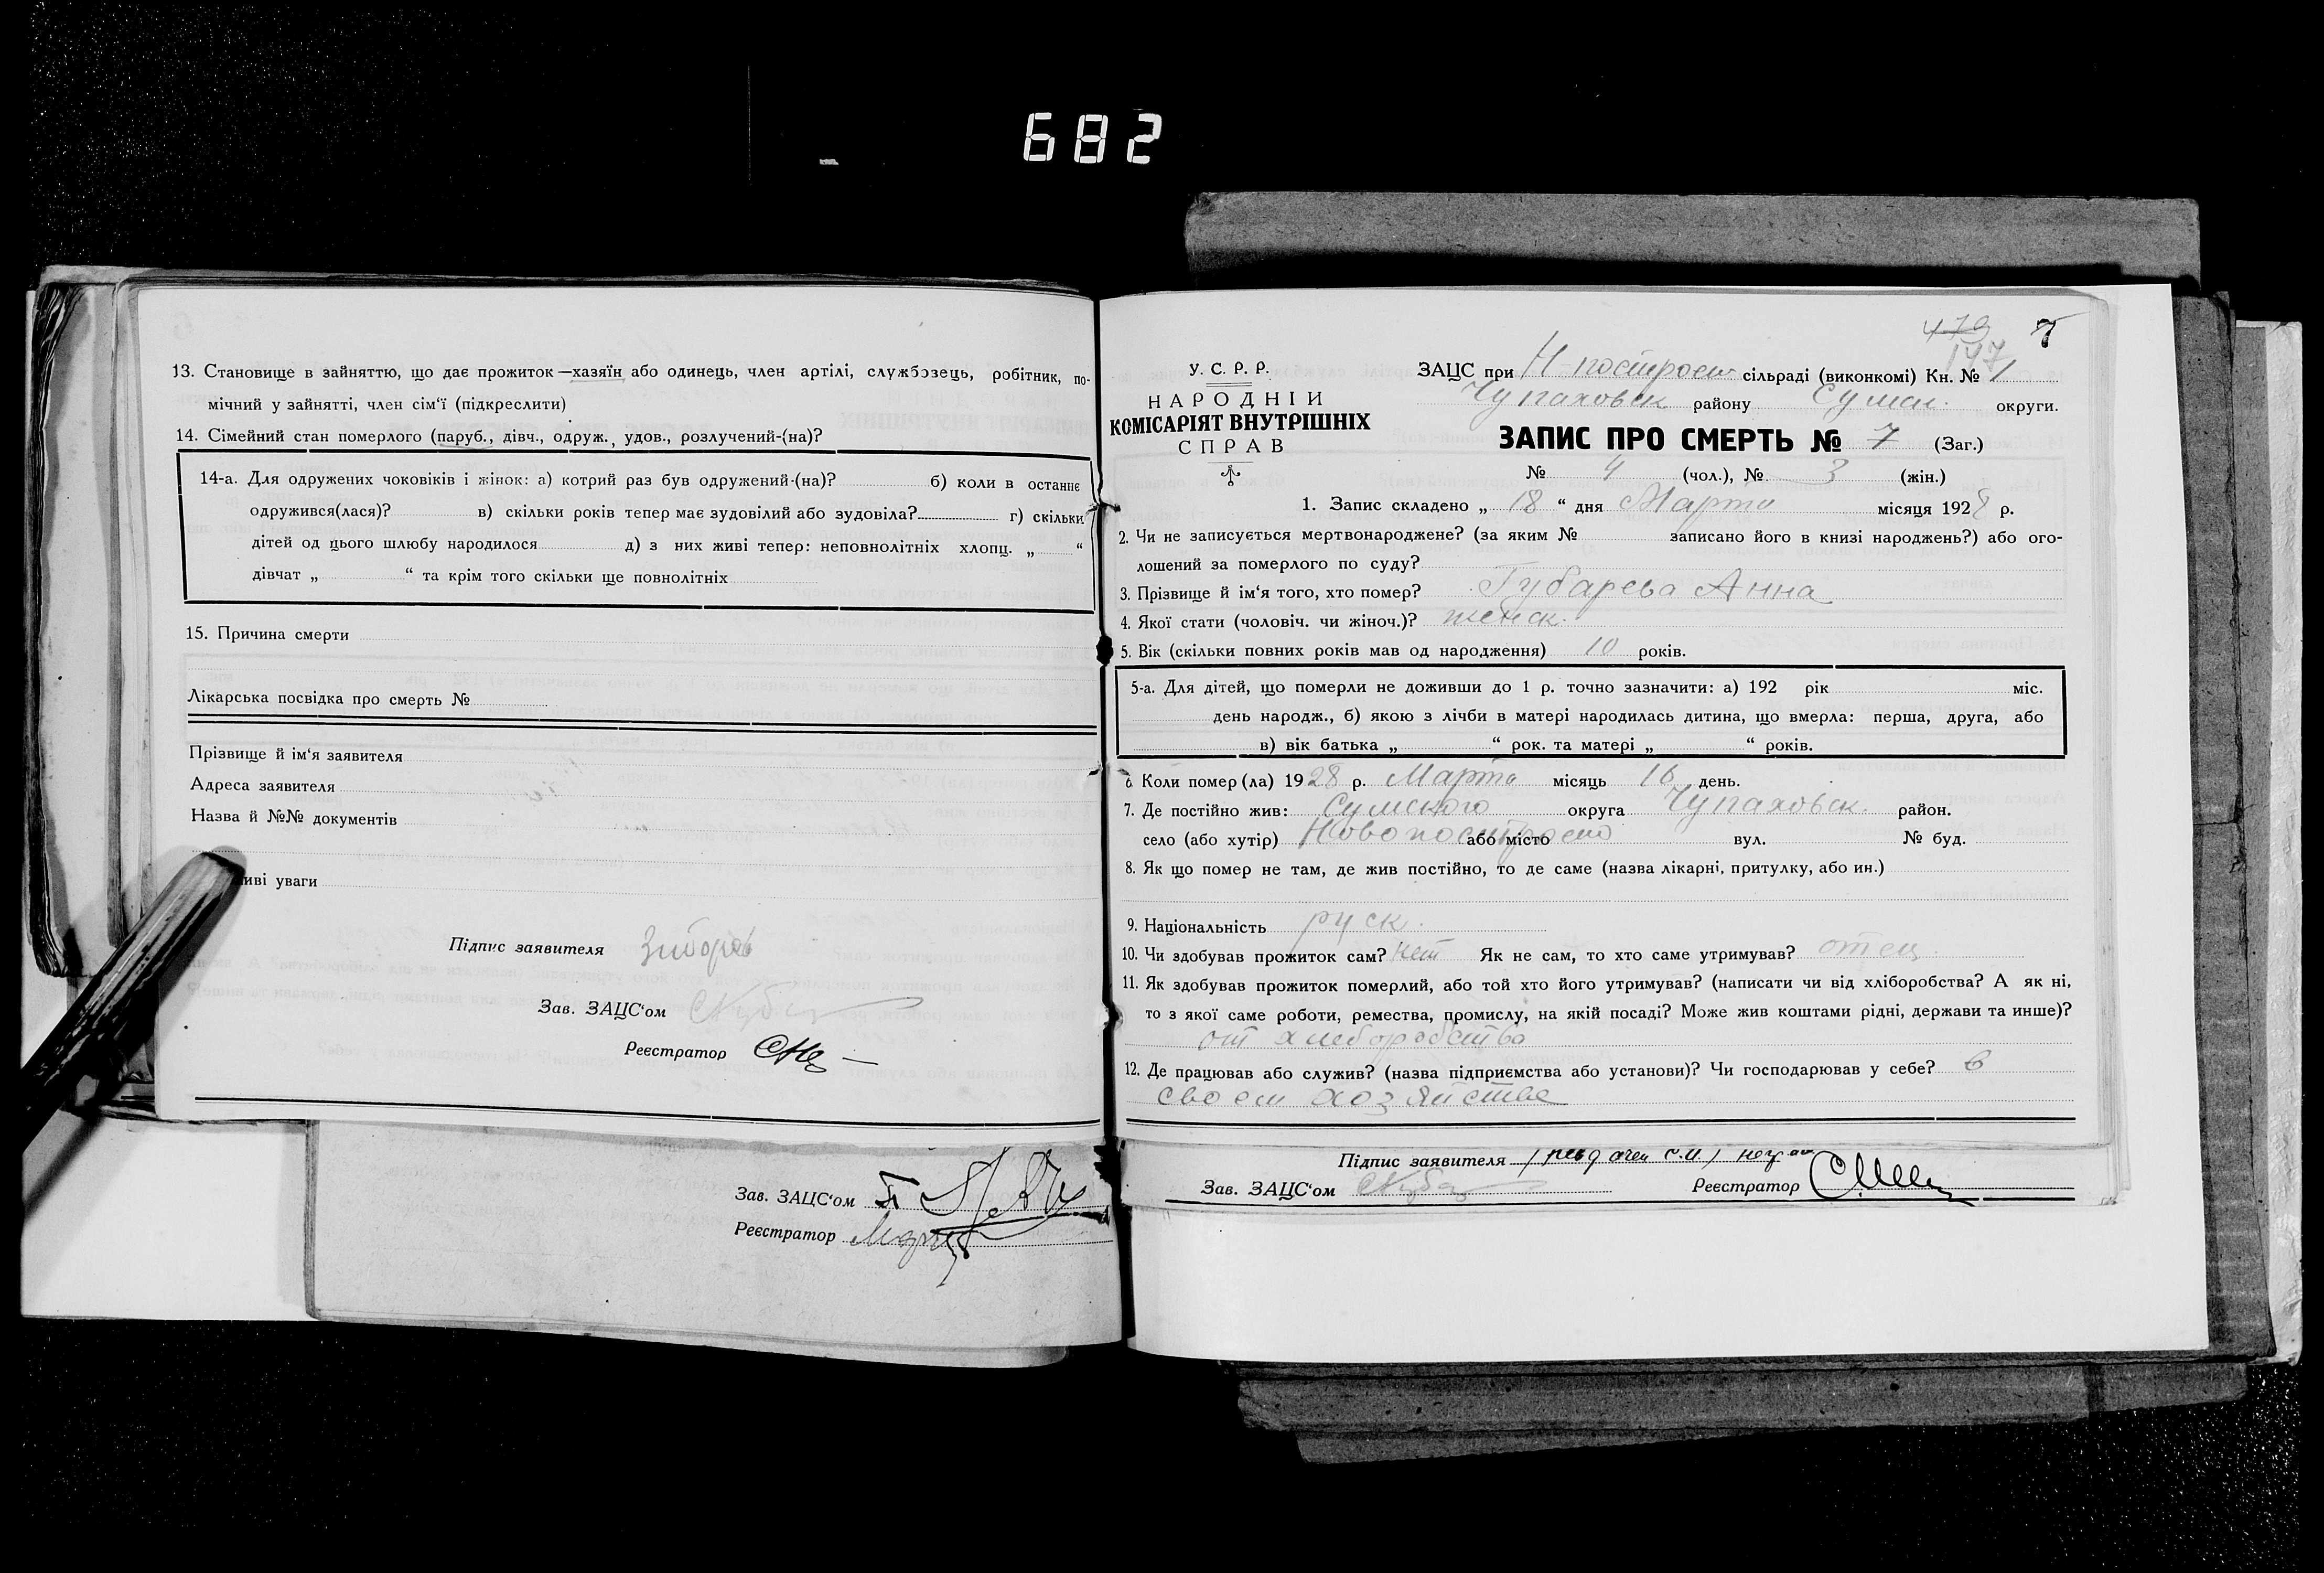 682
13. Становище в зайняттю, що дає прожиток—хазяїн або одинець, член артілі, службовець, робітник, по-
мічний у зайнятті, член сім‘ї (підкреслити)
14. Сімейний стан померлого (паруб., дівч., одруж., удов., розлучений-(на)?
14-а. Для одружених чоковіків і жінок: а) котрий раз був одружений-(на)? б) коли в останнє
одружився(лася)? в) скільки років тепер має зудовілий або зудовіла? г) скільки
дітей од цього шлюбу народилося д) з них живі тепер: неповнолітніх хлопц. „ “
дівчат „ “ та крім того скільки ще повнолітніх
15. Причина смерти
Лікарська посвідка про смерть №
Прізвище й ім‘я заявителя
Адреса заявителя
Назва й №№ документів
иві уваги
Підпис заявителя
Зав. ЗАЦС‘ом
Реєстратор
Зав. ЗАЦС‘ом
Реєстратор
479 7
147
У. С. Р. Р.
НАРОДНІЙ
КОМІСАРІЯТ ВНУТРІШНІХ
СПРАВ
ЗАЦС при Н-построен сільраді (виконкомі) Кн. № 1
Чупаховск району Сумск. округи.
ЗАПИС ПРО СМЕРТЬ № 7 (Заг.)
№ 4 (чол.), № 3 (жін.)
1. Запис складено „ 18 “ дня Марта місяця 1928 р.
2. Чи не записується мертвонароджене? (за яким № записано його в книзі народжень?) або ого-
лошений за померлого по суду?
3. Прізвище й ім‘я того, хто помер? Губарева Анна
4. Якої стати (чоловіч. чи жіноч.)? женск.
5. Вік (скільки повних років мав од народження) 10 років.
5-а. Для дітей, що померли не доживши до 1 р. точно зазначити: а) 192 рік міс.
день народж., б) якою з лічби в матері народилась дитина, що вмерла: перша, друга, або
в) вік батька „ “ рок. та матері „ “ років.
6 Коли помер(ла) 1928 р. Марта місяць 16 день.
7. Де постійно жив: Сумского округа Чупаховск. район.
село (або хутір) Новопостроено або місто вул. № буд.
8. Як що помер не там, де жив постійно, то де саме (назва лікарні, притулку, або ин.)
9. Національність руск.
10. Чи здобував прожиток сам? нет Як не сам, то хто саме утримував? отец.
11. Як здобував прожиток померлий, або той хто його утримував? (написати чи від хліборобства? А як ні,
то з якої саме роботи, ремества, промислу, на якій посаді? Може жив коштами рідні, держави та инше)?
от хлеборобства
12. Де працював або служив? (назва підприємства або установи)? Чи господарював у себе? в
своем хозяйстве
Підпис заявителя
Зав. ЗАЦС‘ом Реєстратор